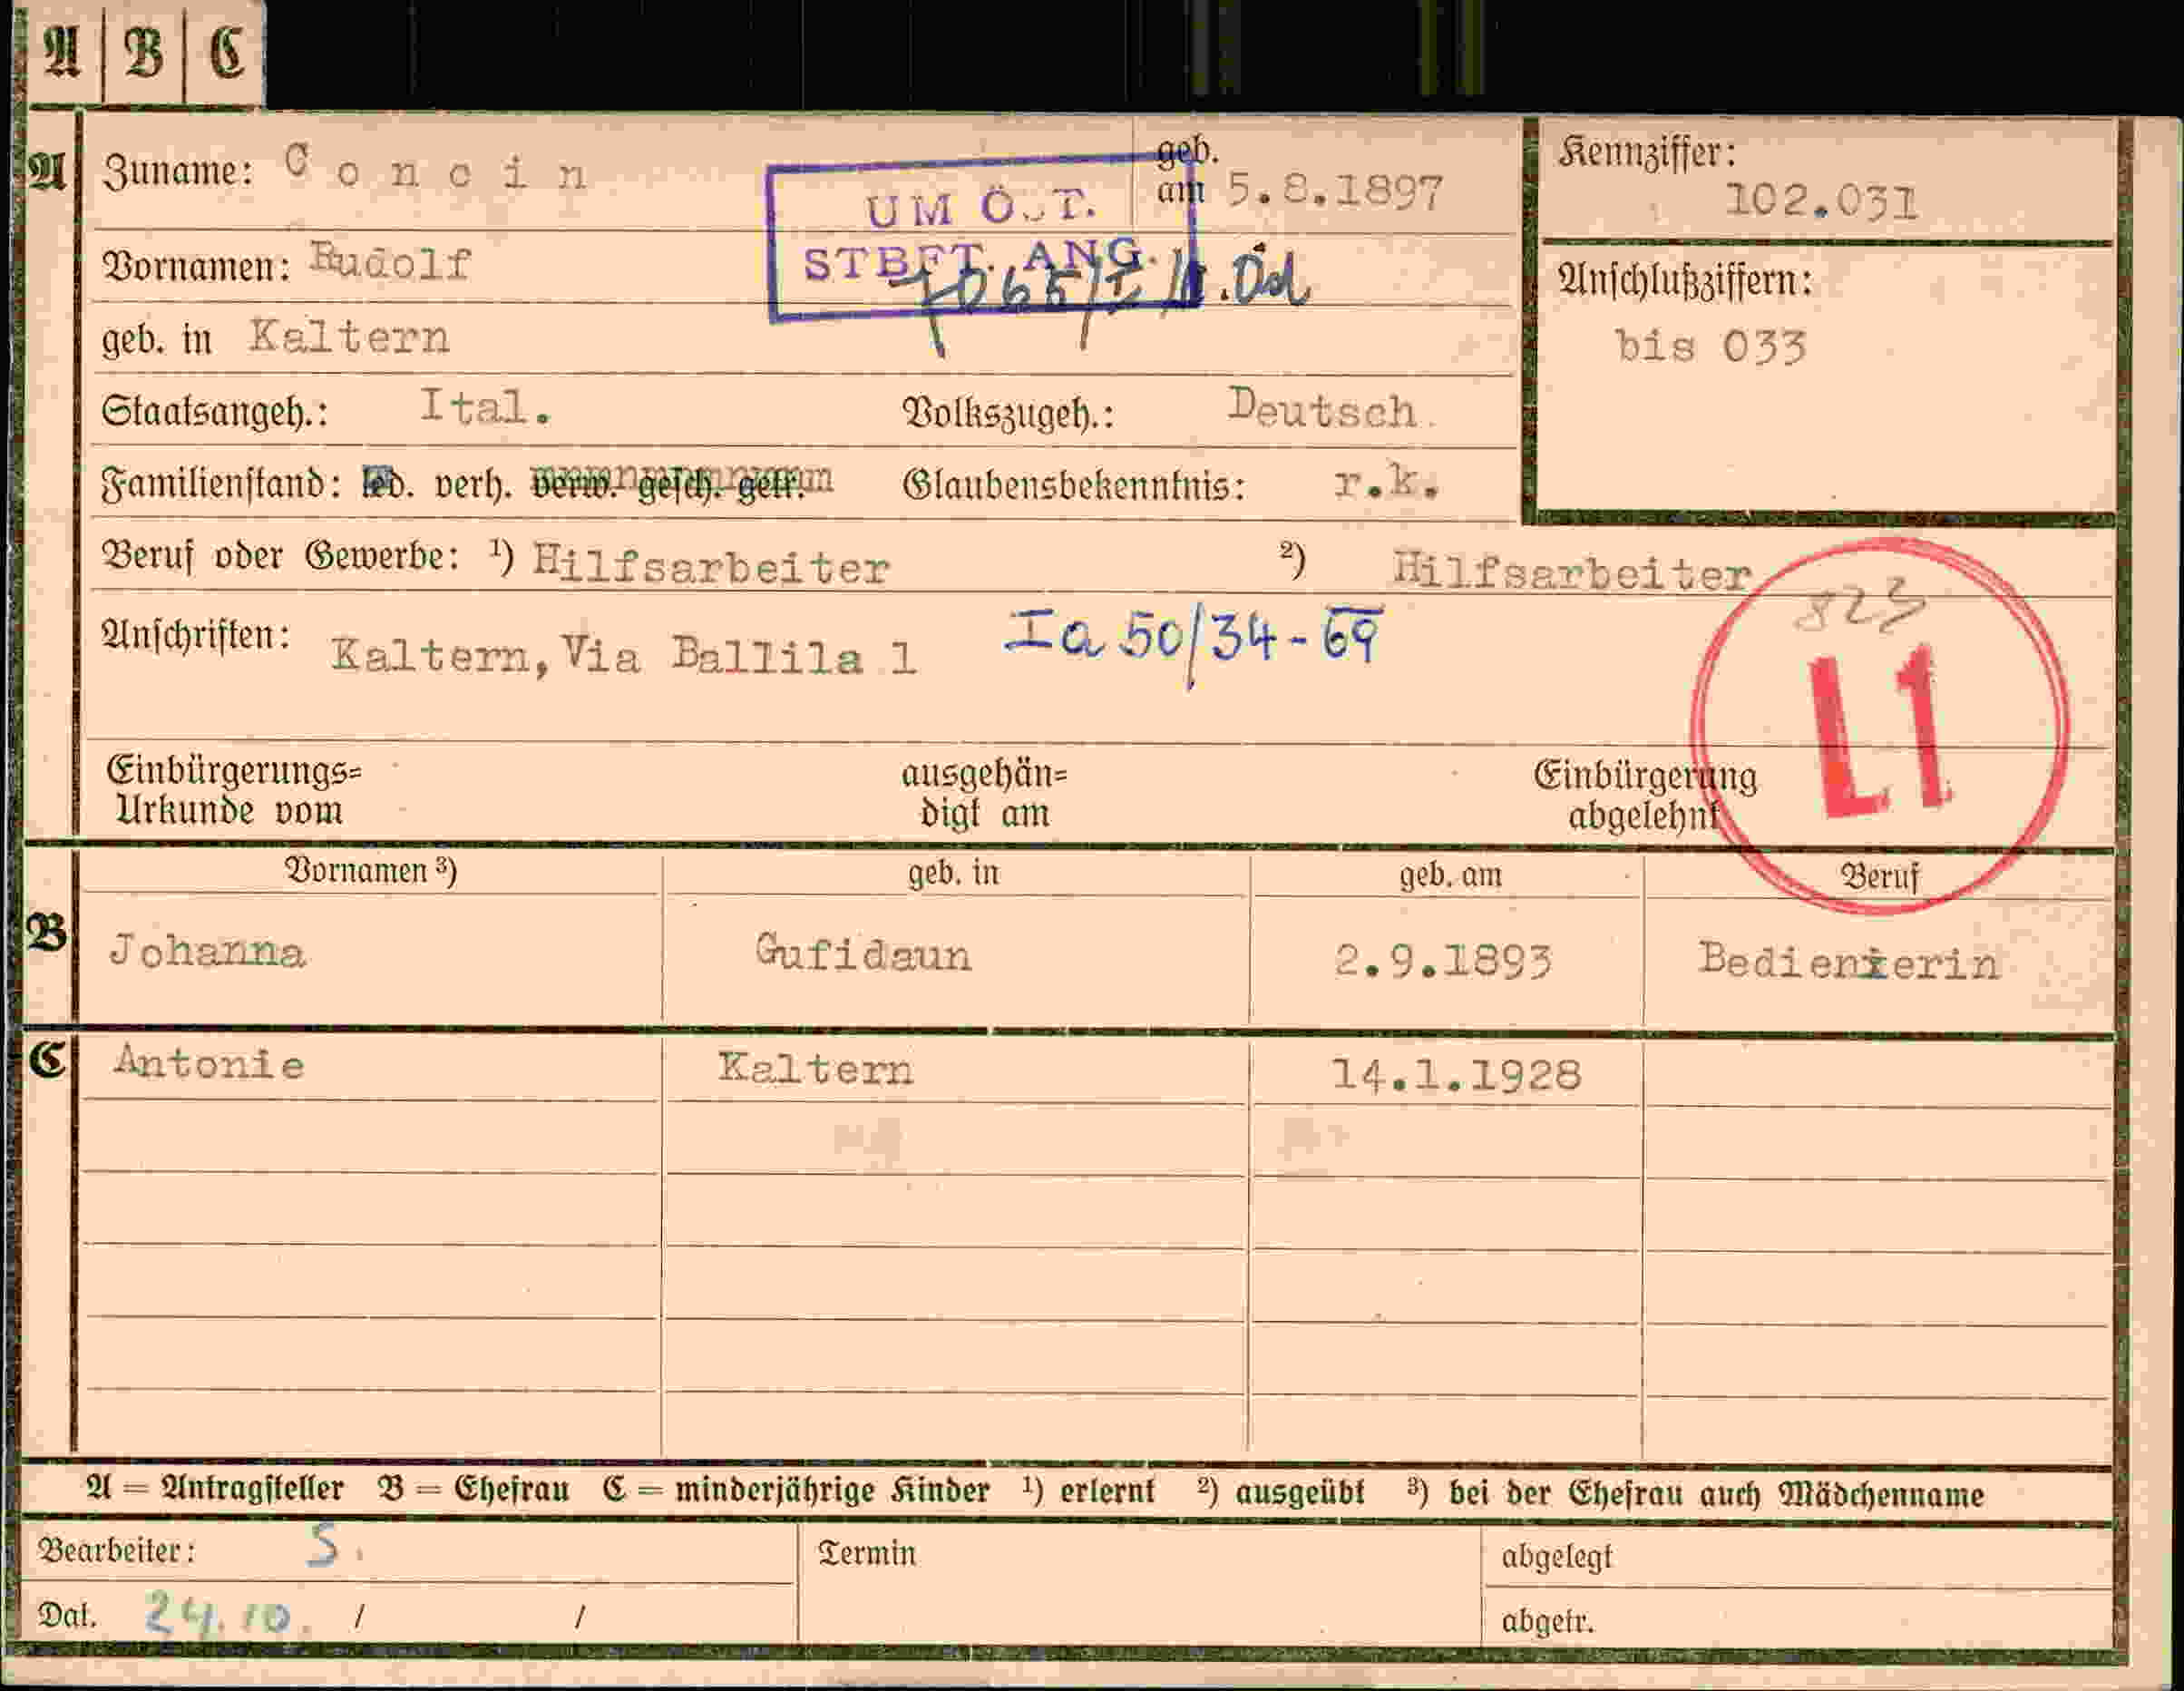 A B C
A Zuname: Concin geb. am 5.8.1897 Kennziffer: 102.031
UM Ö.T.
STBFT. ANG.
Vornamen: Rudolf Anschlußziffern:
geb. in Kaltern bis 033
Staatsangeh.: Ital. Volkszugeh.: Deutsch.
Familienstand: led. verh. verw. gesch. getr. Glaubensbekenntnis: r.k.
Beruf oder Gewerbe: ¹) Hilfsarbeiter ²) Hilfsarbeiter
823
Anschriften: Kaltern, Via Ballila 1 Ia 50/34-69
L1
Einbürgerungs= ausgehän= Einbürgerung
Urkunde vom digt am abgelehnt
Vornamen ³) geb. in geb. am Beruf
B Johanna Gufidaun 2.9.1893 Bedienterin
C Antonie Kaltern 14.1.1928
A = Antragsteller B = Ehefrau C = minderjährige Kinder ¹) erlernt ²) ausgeübt ³) bei der Ehefrau auch Mädchenname
Bearbeiter: S. Termin abgelegt
Dat. 24.10. / / abgetr.